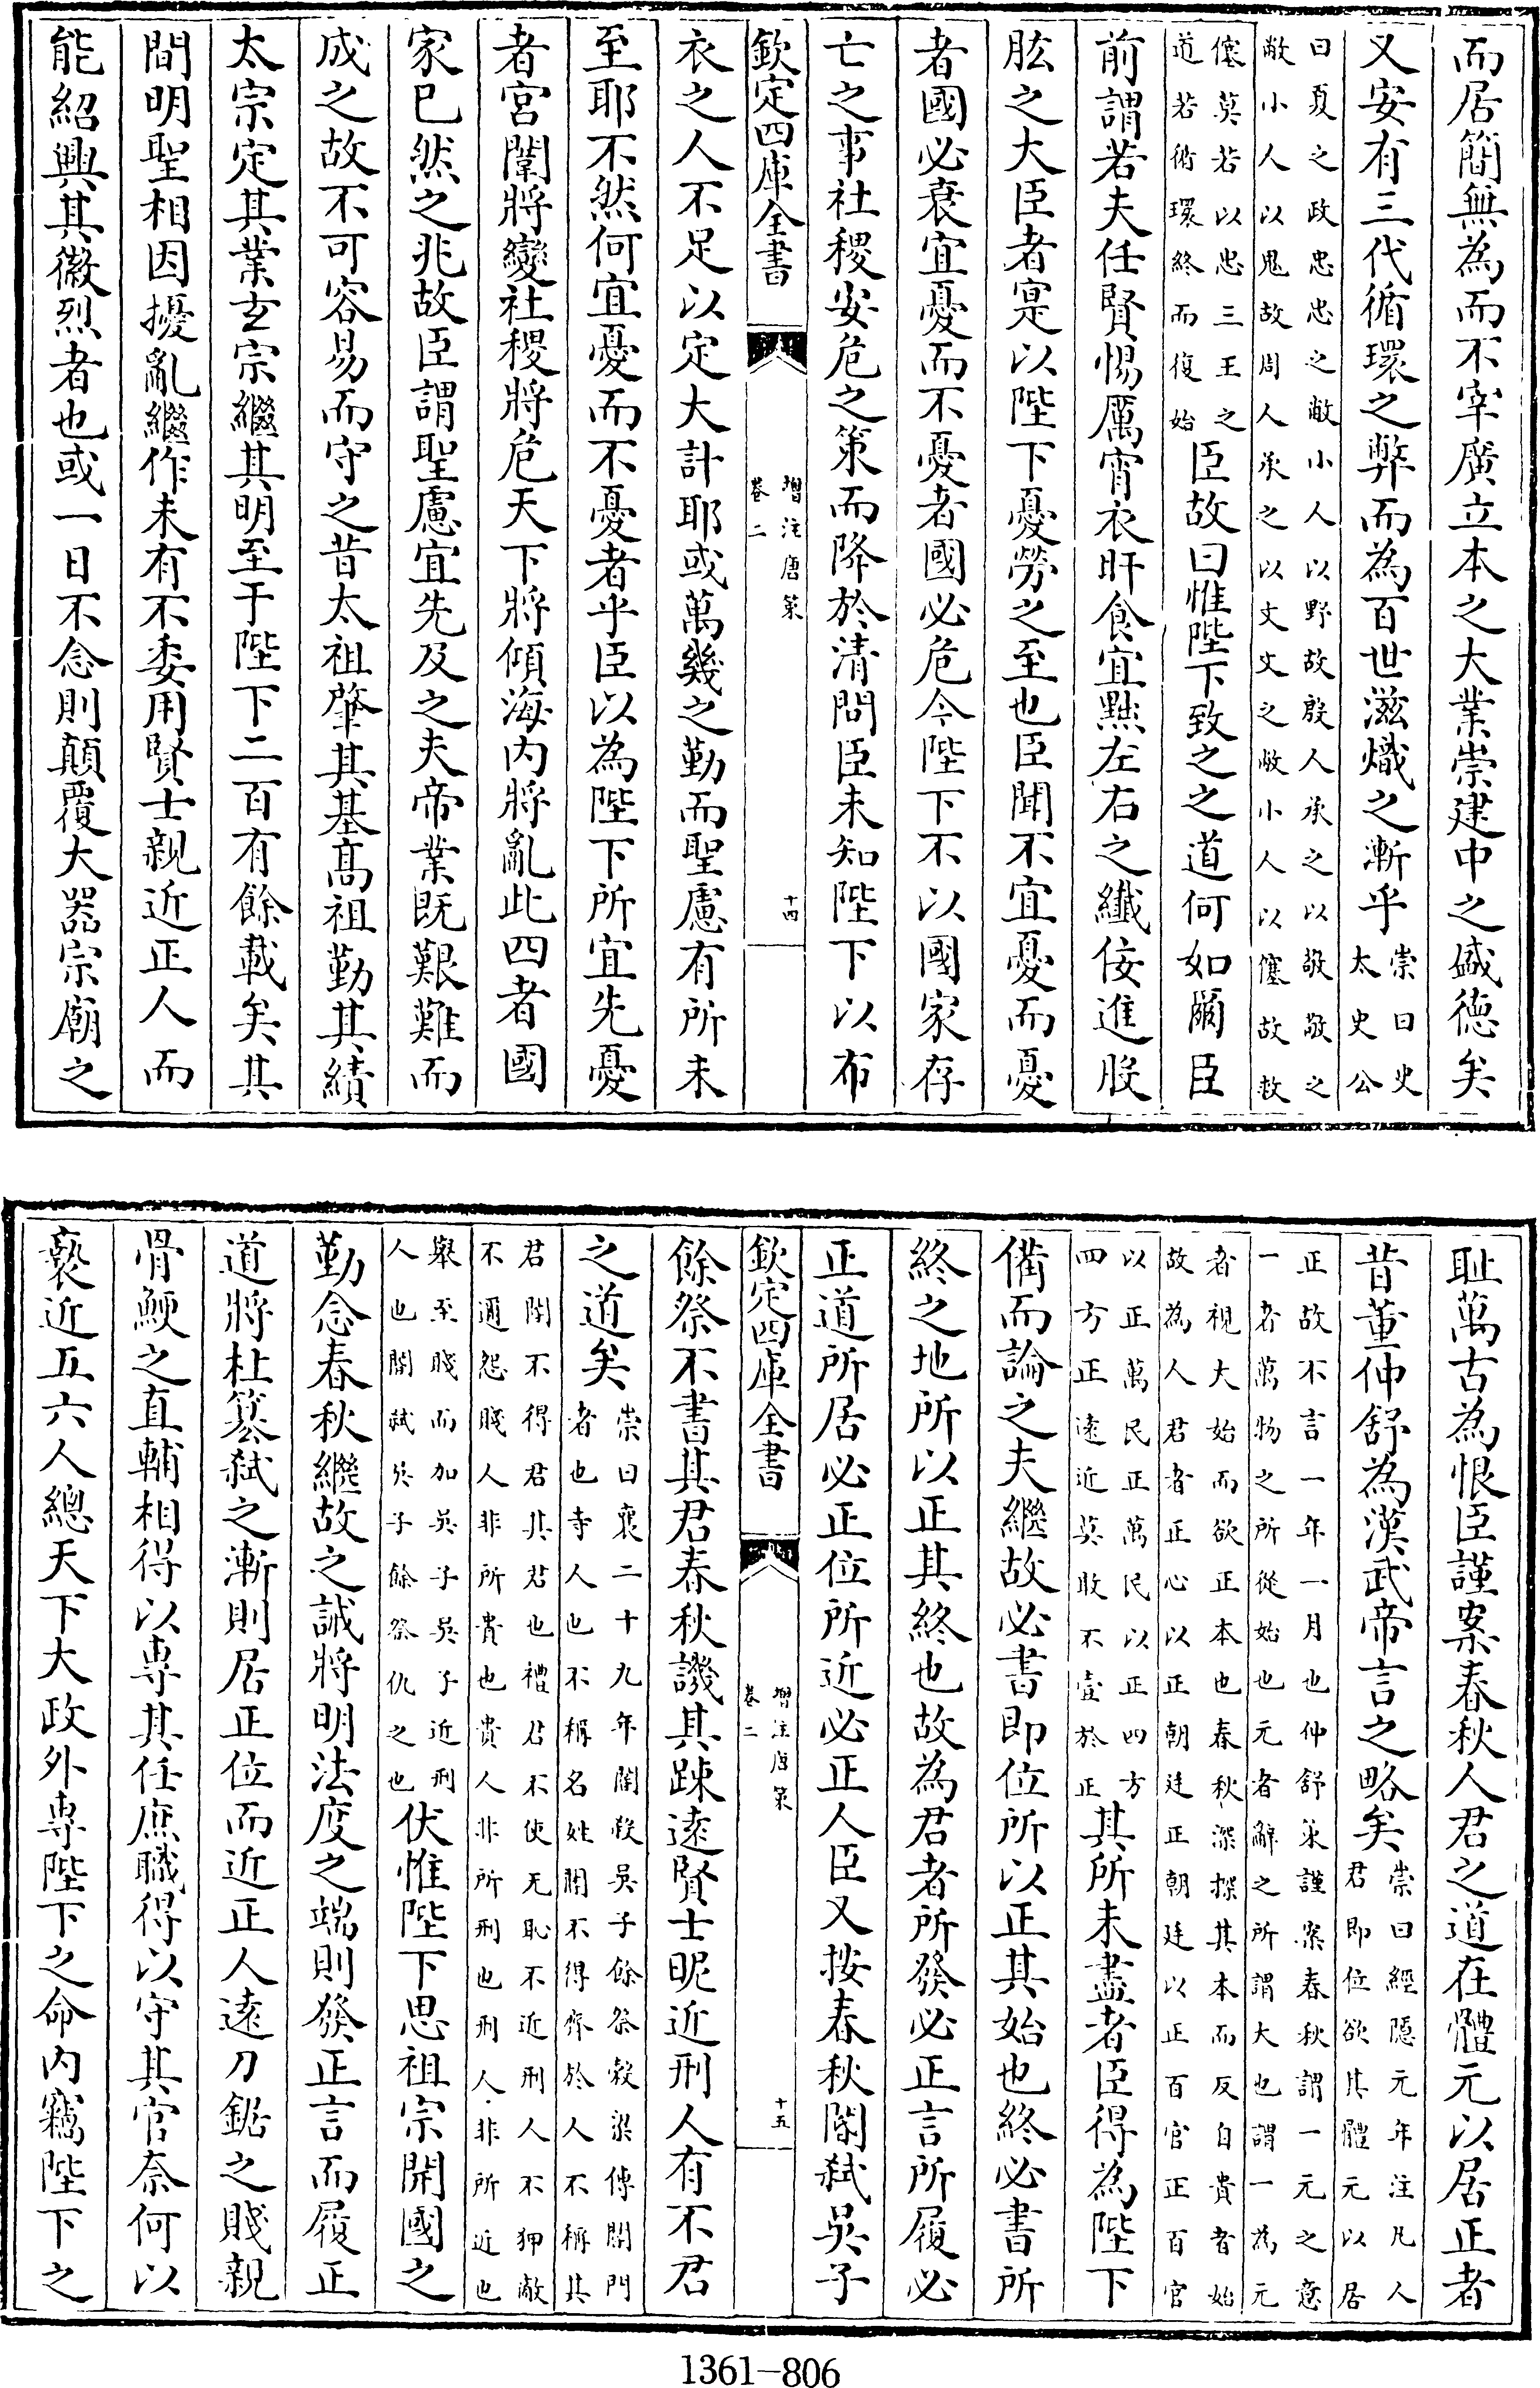 而居簡無為而不宰廣立本之大業崇建中之盛德矣
又安有三代循環之弊而為百世滋熾之漸乎崇曰史太史公
曰夏之政忠忠之敝小人以野故殷人承之以敬敬之
敝小人以鬼故周人承之以文文之敝小人以僿故救
僿莫若以忠三王之道若循環終而復始臣故曰惟陛下致之之道何如爾臣
前謂若夫任賢惕厲宵衣旰食宜黜左右之纖佞進股
肱之大臣者寔以陛下憂勞之至也臣聞不宜憂而憂
者國必衰宜憂而不憂者國必危今陛下不以國家存
亡之事社稷安危之策而降於清問臣未知陛下以布
欽定四庫全書
增注唐策
卷二
十四
衣之人不足以定大計耶或萬幾之勤而聖慮有所未
至耶不然何宜憂而不憂者乎臣以為陛下所宜先憂
者宮闈將變社稷將危天下將傾海内將亂此四者國
家已然之兆故臣謂聖慮宜先及之夫帝業既艱難而
成之故不可容易而守之昔太祖肇其基高祖勤其績
太宗定其業玄宗繼其明至于陛下二百有餘載矣其
間明聖相因擾亂繼作未有不委用賢士親近正人而
能紹興其徽烈者也或一日不念則顛覆大器宗廟之
耻萬古為恨臣謹案春秋人君之道在體元以居正者
昔董仲舒為漢武帝言之略矣崇曰經隱元年注凡人君即位欲其體元以居
正故不言一年一月也仲舒策謹案春秋謂一元之意
一者萬物之所從始也元者辭之所謂大也謂一為元
者視大始而欲正本也春秋深探其本而反自貴者始
故為人君者正心以正朝廷正朝廷以正百官正百官
以正萬民正萬民以正四方四方正遠近莫敢不壹於正其所未盡者臣得為陛下
備而論之夫繼故必書即位所以正其始也終必書所
終之地所以正其終也故為君者所發必正言所履必
正道所居必正位所近必正人臣又按春秋閽弑吳子
欽定四庫全書
增注唐策
卷二
十五
餘祭不書其君春秋譏其疎遠賢士昵近刑人有不君
之道矣崇曰襄二十九年閽殺吳子餘祭榖梁傳閽門者也寺人也不稱名姓閽不得齊於人不稱其
君閽不得君其君也禮君不使无恥不近刑人不狎敵
不邇怨賤人非所貴也貴人非所刑也刑人非所近也
舉至賤而加吳子吳子近刑人也閽弑吳子餘祭仇之也伏惟陛下思祖宗開國之
勤念春秋繼故之誡將明法度之端則發正言而履正
道將杜簒弑之漸則居正位而近正人遠刀鋸之賤親
骨鯁之直輔相得以専其任庶職得以守其官奈何以
䙝近五六人總天下大政外専陛下之命内竊陛下之
1361-806